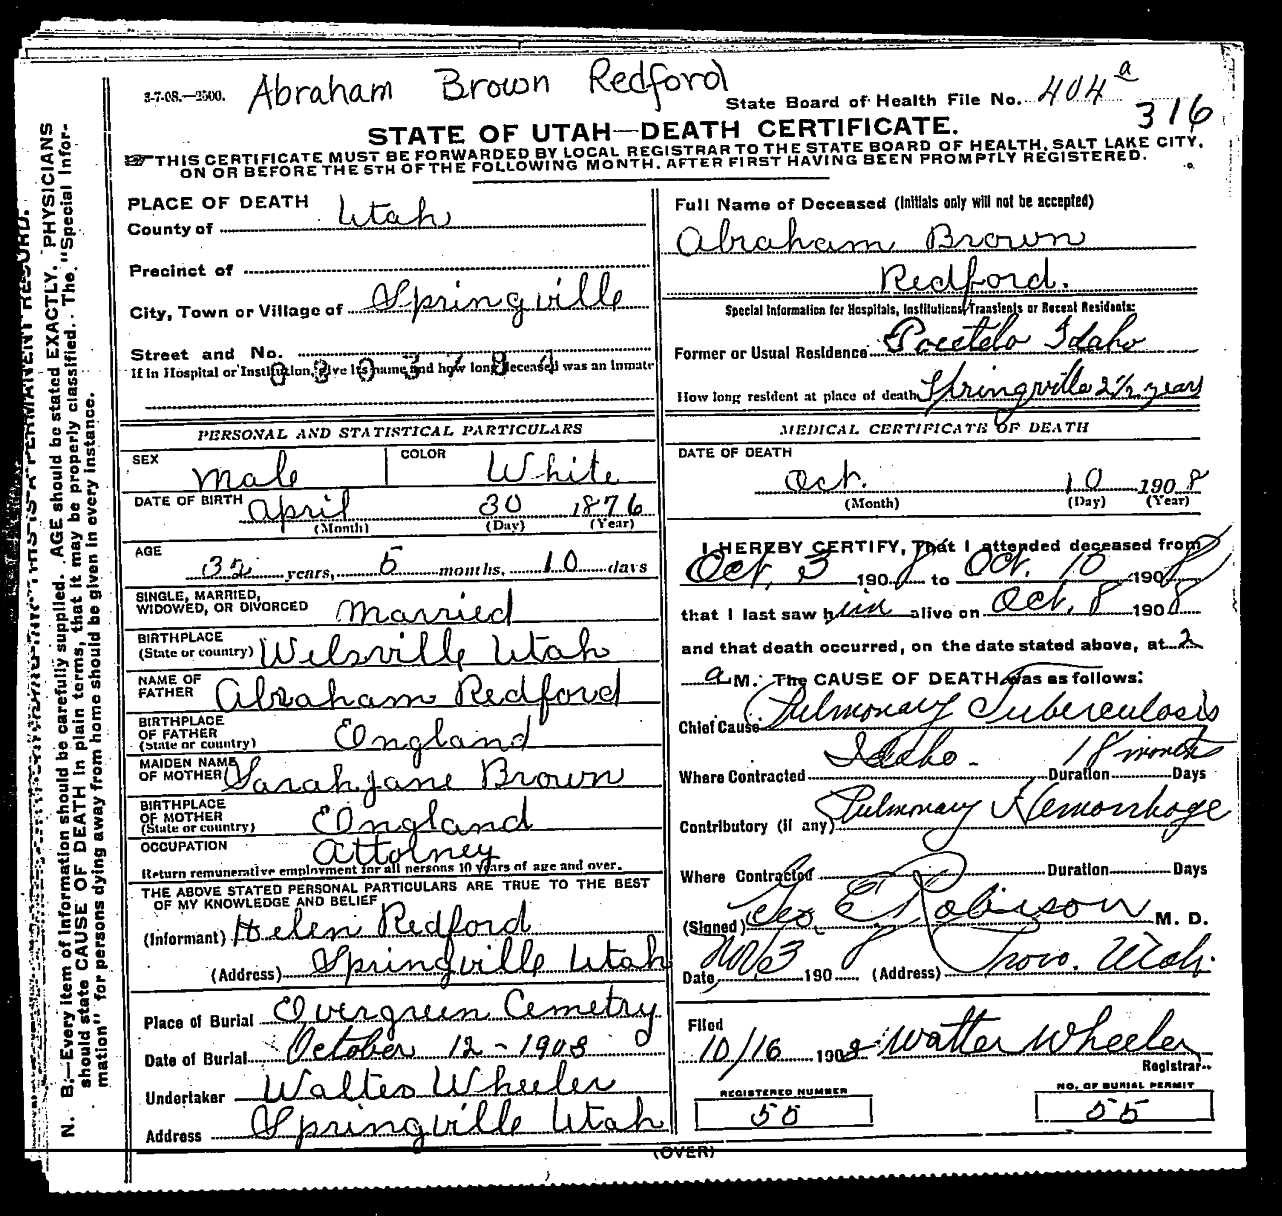 3-7-08.—2500. Abraham Brown Redford
State Board of Health File No. 404 a
316
STATE OF UTAH—DEATH CERTIFICATE.
THIS CERTIFICATE MUST BE FORWARDED BY LOCAL REGISTRAR TO THE STATE BOARD OF HEALTH, SALT LAKE CITY,
ON OR BEFORE THE 5TH OF THE FOLLOWING MONTH, AFTER FIRST HAVING BEEN PROMPTLY REGISTERED.
PLACE OF DEATH
County of Utah
Precinct of
City, Town or Village of Springville
Street and No.
If in Hospital or Institution, give its name and how long deceased was an inmate
PERSONAL AND STATISTICAL PARTICULARS
SEX Male COLOR White
DATE OF BIRTH April 30 1876
(Month) (Day) (Year)
AGE
32 years, 5 months, 10 days
SINGLE, MARRIED,
WIDOWED, OR DIVORCED Married
BIRTHPLACE
(State or country) Welsville Utah
NAME OF
FATHER Abraham Redford
BIRTHPLACE
OF FATHER
(State or country) England
MAIDEN NAME
OF MOTHER Sarah Jane Brown
BIRTHPLACE
OF MOTHER
(State or country) England
OCCUPATION Attorney
Return remunerative employment for all persons 10 years of age and over.
THE ABOVE STATED PERSONAL PARTICULARS ARE TRUE TO THE BEST
OF MY KNOWLEDGE AND BELIEF
(Informant) Helen Redford
(Address) Springville Utah
Place of Burial Evergreen Cemetry
Date of Burial October 12-1908
Undertaker Walter Wheeler
Address Springville Utah
Full Name of Deceased (Initials only will not be accepted)
Abraham Brown
Redford.
Special Information for Hospitals, Institutions, Transients or Recent Residents:
Former or Usual Residence Pocetelo Idaho
How long resident at place of death Springville 2 1/2 years
MEDICAL CERTIFICATE OF DEATH
DATE OF DEATH
Oct. 10 1908
(Month) (Day) (Year)
I HEREBY CERTIFY, That I attended deceased from
Oct, 3 1908 to Oct. 10 1908
that I last saw him alive on Oct. 8 1908
and that death occurred, on the date stated above, at 2
a M. The CAUSE OF DEATH was as follows:
Chief Cause Pulmonary Tuberculosis
Where Contracted Idaho - Duration 18 months Days
Contributory (if any) Pulmonary Hemorrhage
Where Contracted Duration Days
(Signed) Geo. E Robison M. D.
Date Nov 3 1908 (Address) Provo. Utah.
Filed
10/16 1908 Walter Wheeler
Registrar
REGISTERED NUMBER
55
NO. OF BURIAL PERMIT
55
(OVER)
N. B.—Every item of information should be carefully supplied. AGE should be stated EXACTLY. PHYSICIANS
should state CAUSE OF DEATH in plain terms, that it may be properly classified. The "Special Infor-
mation" for persons dying away from home should be given in every instance.